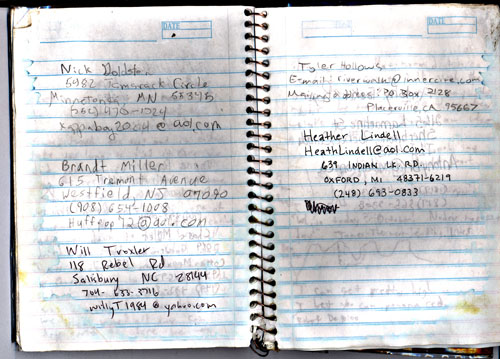 DATE
Nick
5482 Tamarack Circle
Minnetonka, MN 55345
@aol.com
Brandt Miller
615 Tremont Avenue
Westfield NJ 07090
(908) 654-1008
Will Troxler
118 Rebel Rd
Salisbury NC 28144
704- 633-3716
willyT1984@yahoo.com
DATE
Tyler Hollows
E-mail: riverwalk@innercite.com
Mailing address: P.O. Box 2128
Placerville, CA 95667
Heather Lindell
HeathLindell@aol.com
639 INDIAN LK RD
OXFORD, MI 48371-6219
(248) 693-0833